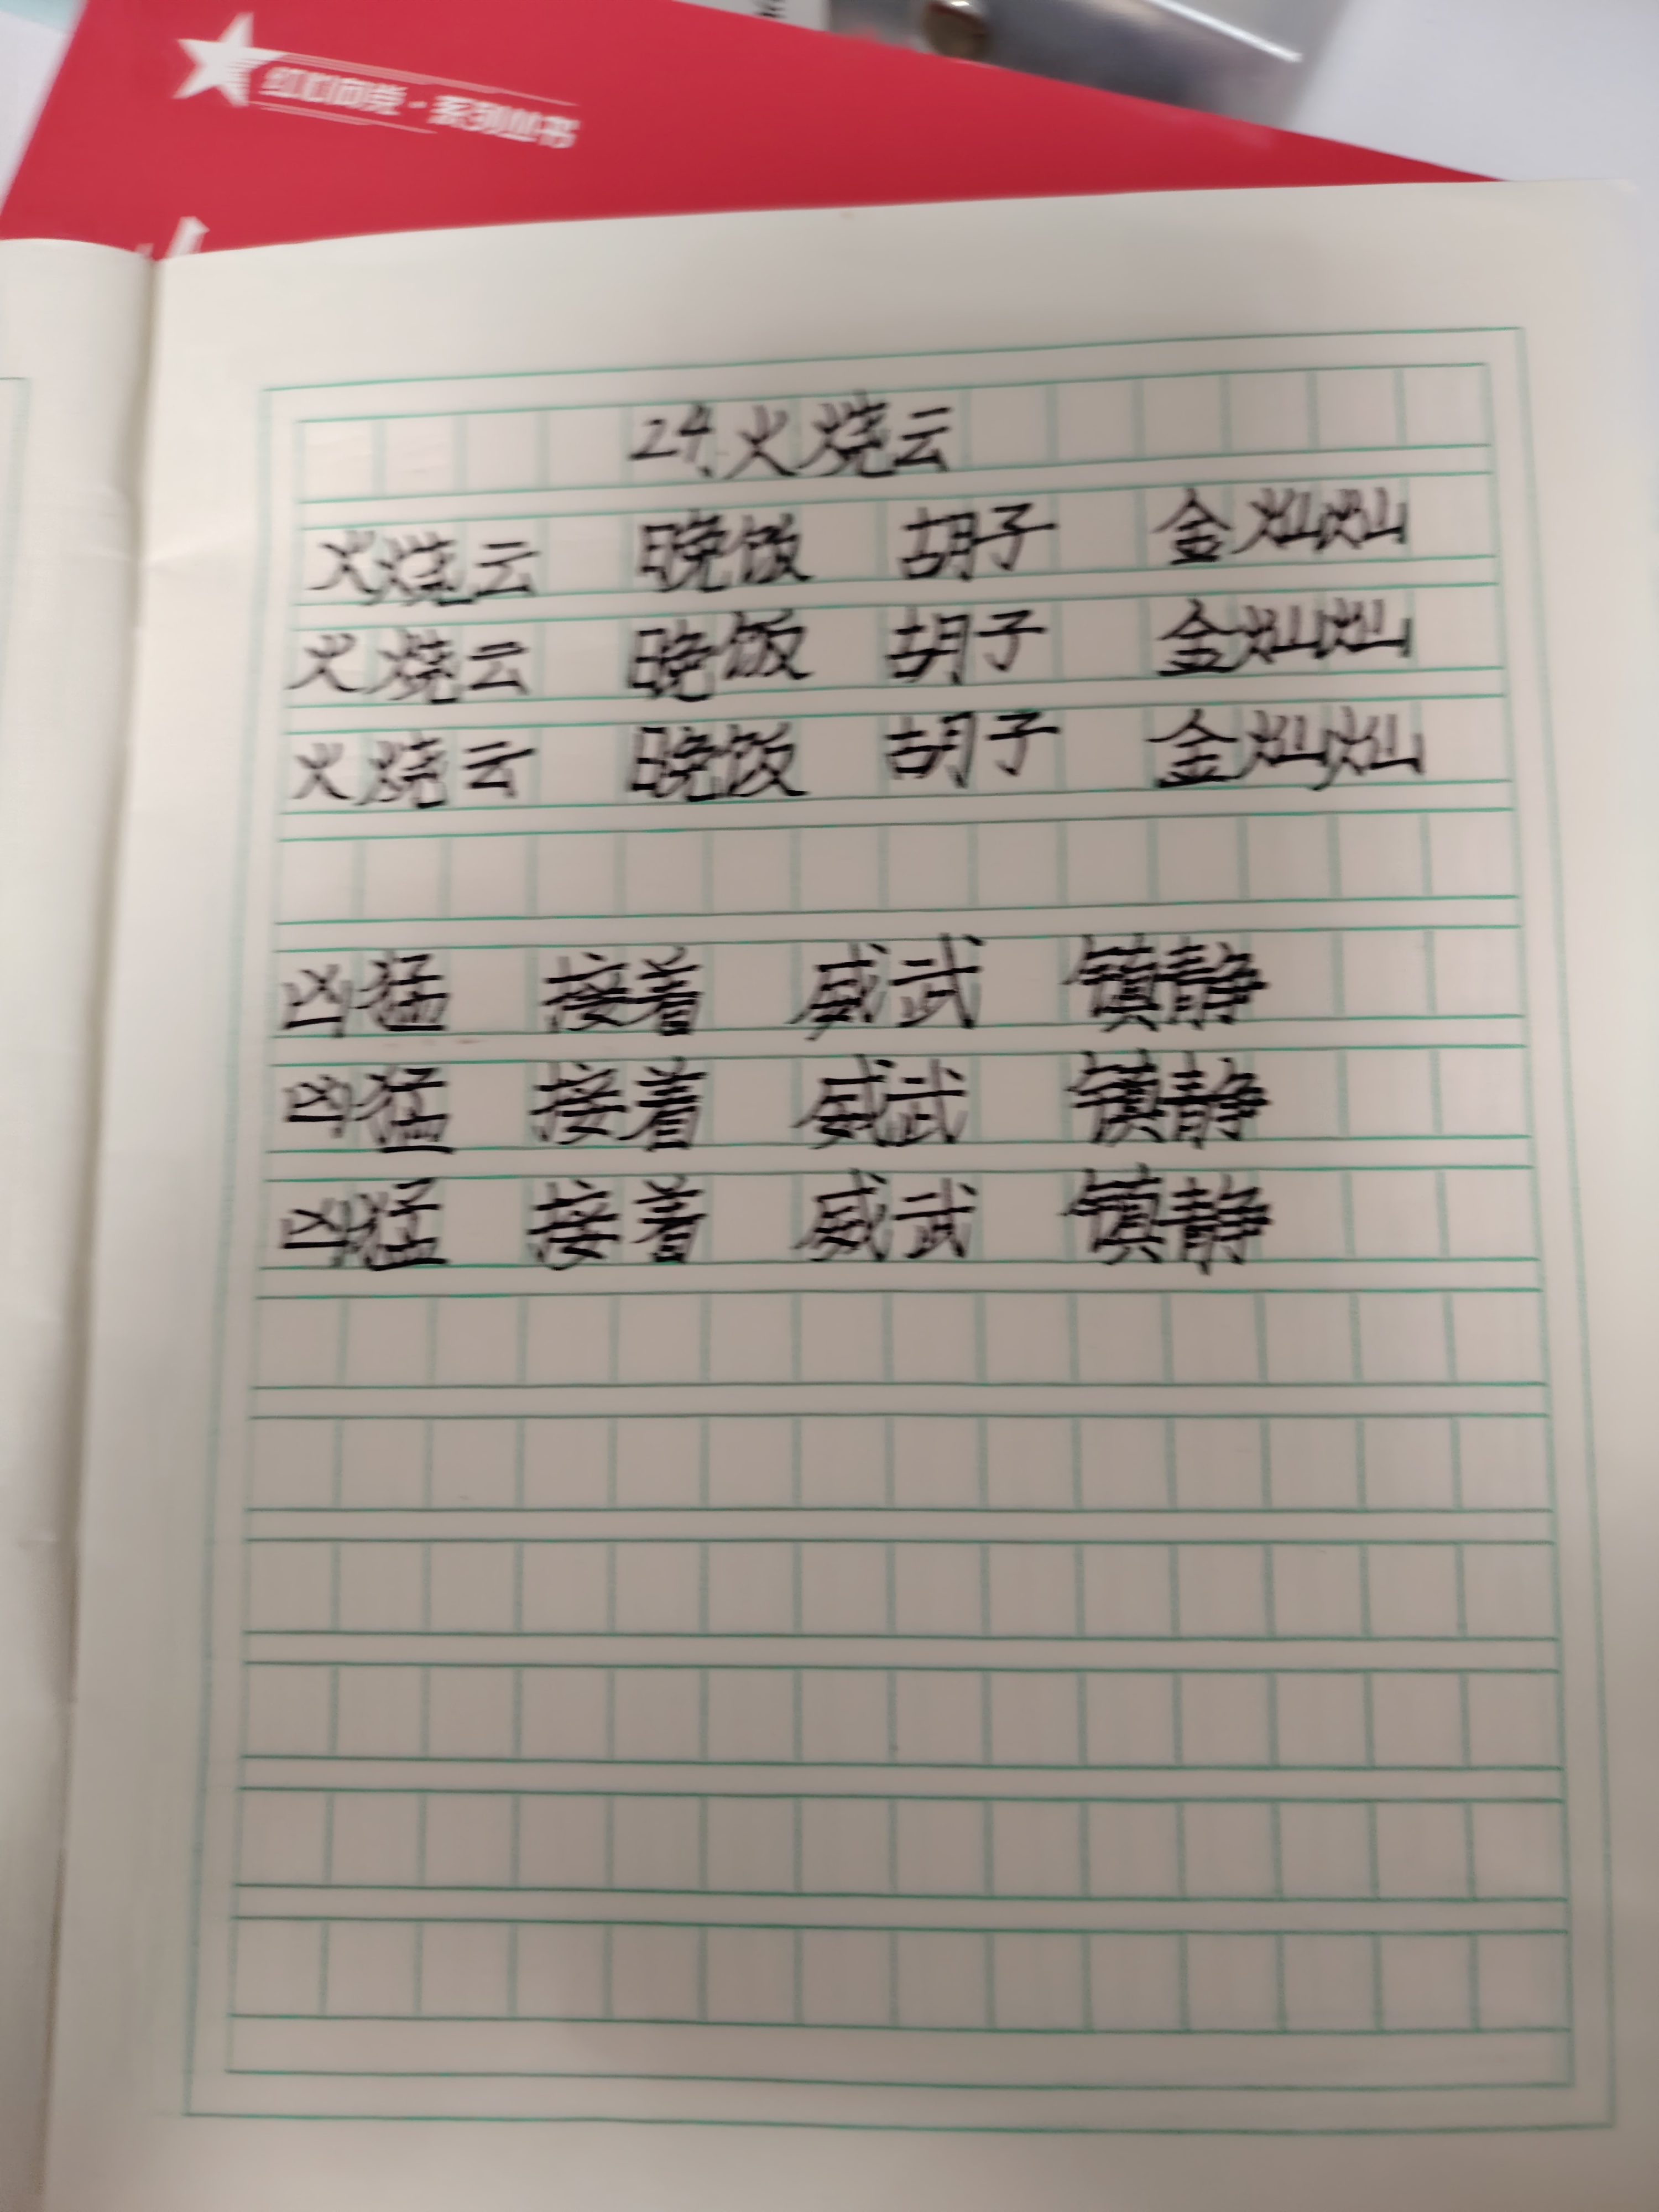 红心向党·系列丛书
24.火烧云
火烧云 晚饭 胡子 金灿灿
火烧云 晚饭 胡子 金灿灿
火烧云 晚饭 胡子 金灿灿
凶猛 接着 威武 镇静
凶猛 接着 威武 镇静
凶猛 接着 威武 镇静